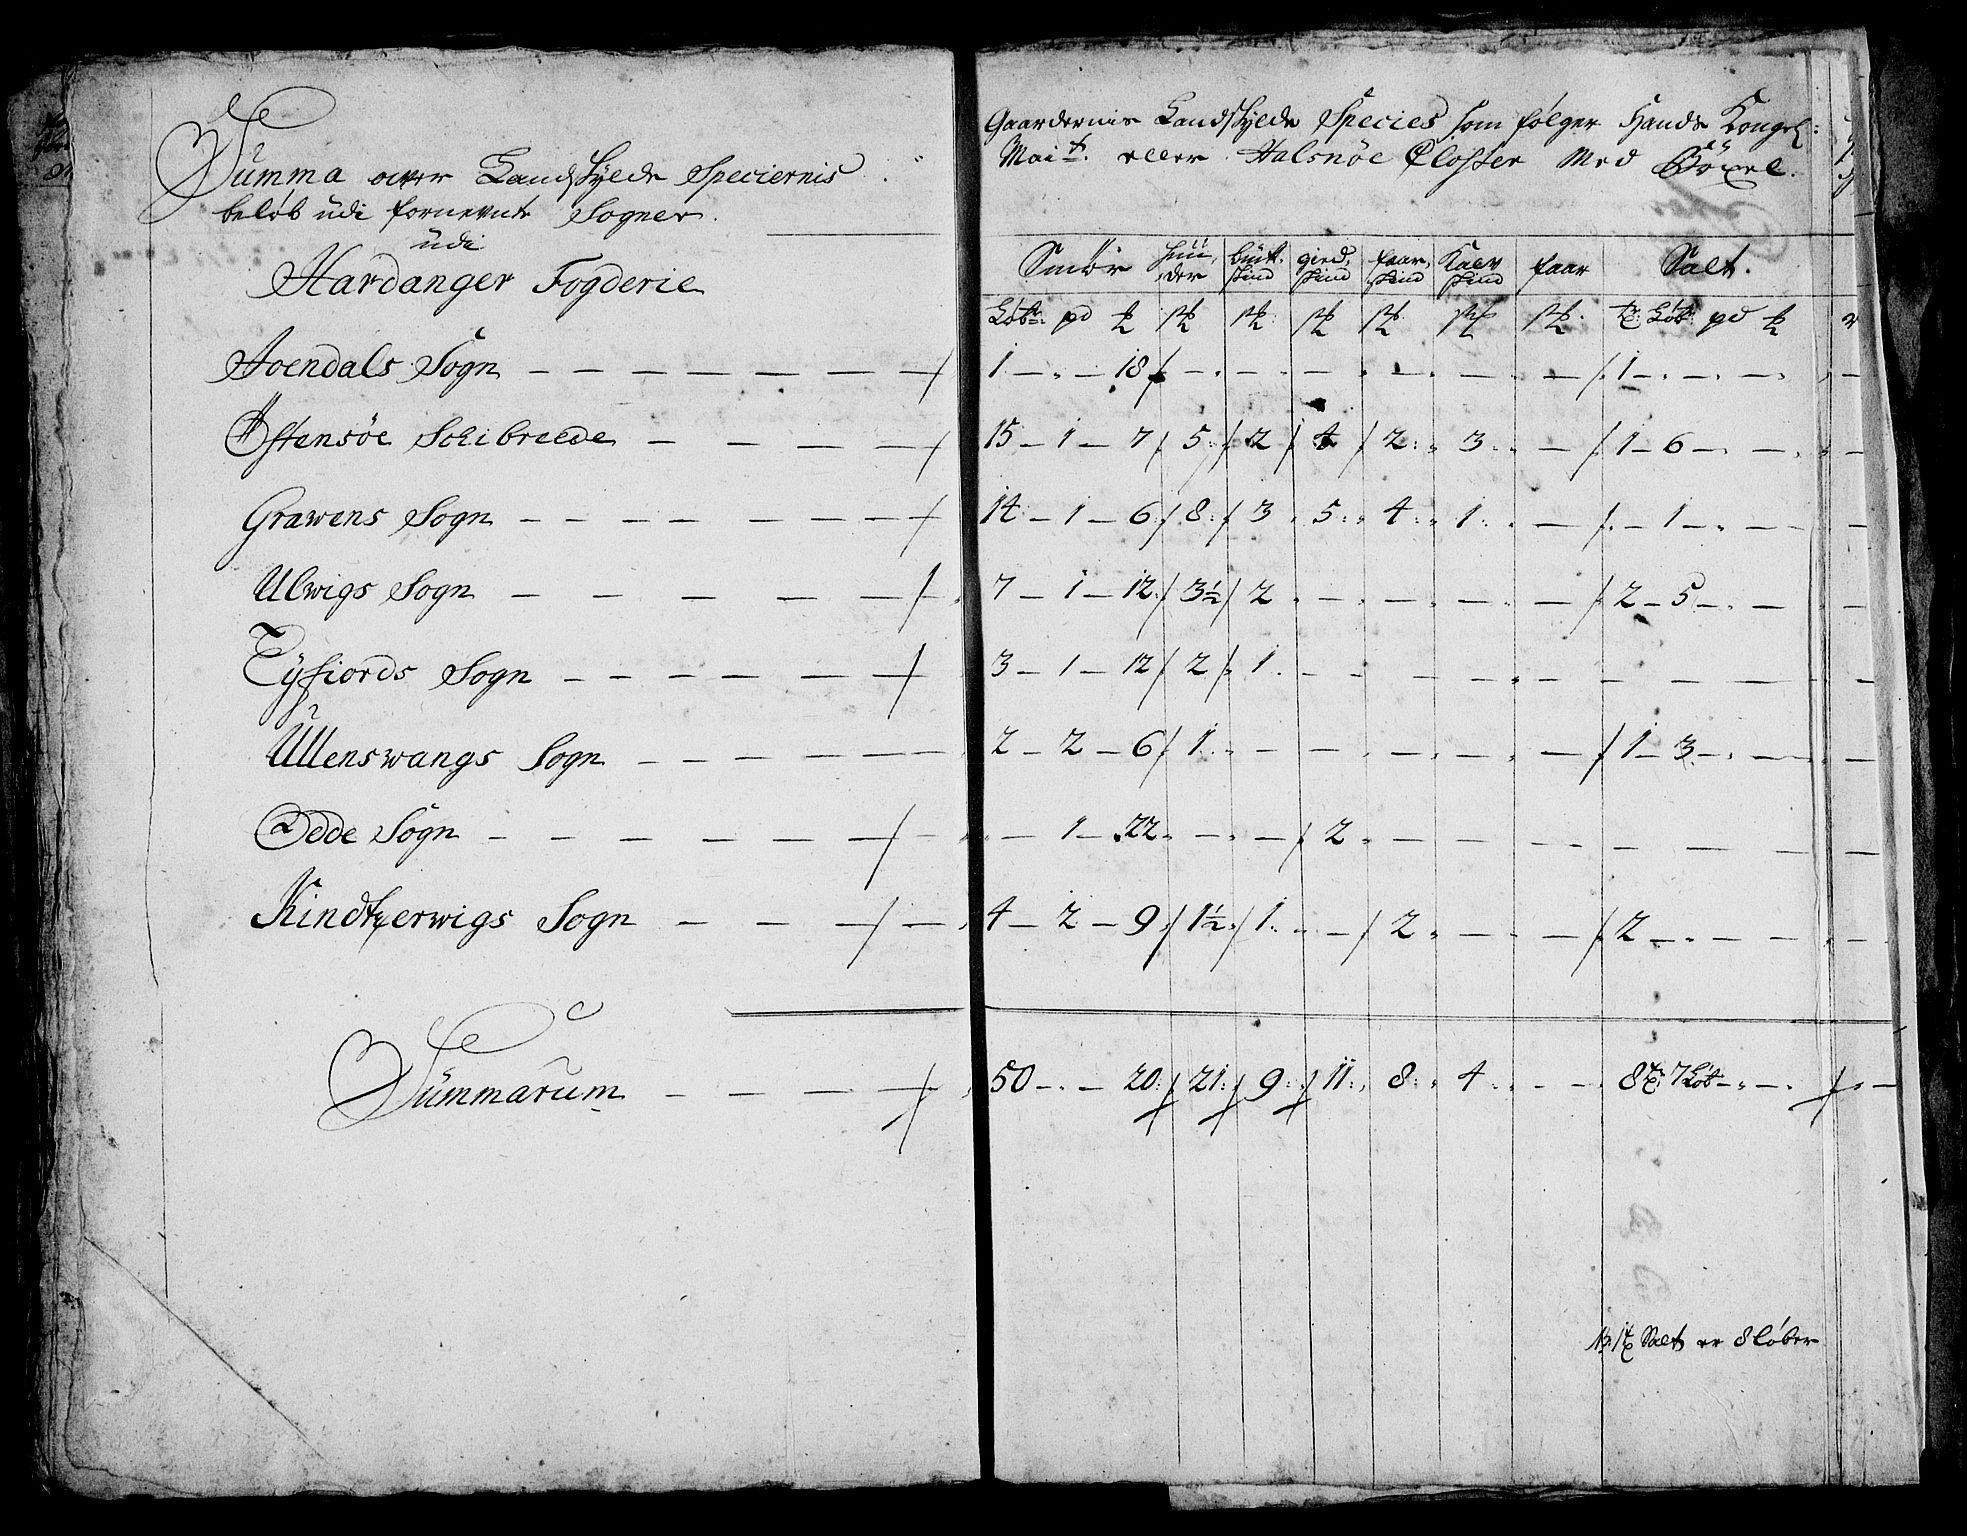 Summa over Landskylds Speciernis
beløb udi fornevnte Sogner
udi
Hardanger Fogderie
Gaardernis Landskylds Species som følger Hands Kongel:
Mait. eller Halsnöe Closter Med Böxel.
Smör Huuder buck skind gied skind faar skind Kalv skind faar Salt.
Løb: pd ℔ st st st st st st tø: Løb: pd ℔
Joendals Sogn — — — — — — — 1 — " — 18 — " — — — — — — 1 — " — —
Östensöe Schibreede — — — — 15 — 1 — 7 5 2 4 2 3 — — 1 — 6 — " —
Grawens Sogn — — — — — — — 14 — 1 — 6 8 3 5 4 1 — — — 1 — " —
Ulwigs Sogn — — — — — — 7 — 1 — 12 3½ 2 — — — — — 2 — 5 — " —
Eyfiords Sogn — — — — — — — 3 — 1 — 12 2 1 — — — — — — — —
Ullenswangs Sogn — — — — — 2 — 2 — 6 1 — — — — — — 1 — 3 — " —
Odde Sogn — — — — — — — " — 1 — 22 — — 2 — — — — — — —
Kindtzerwigs Sogn — — — — 4 — 2 — 9 1½ 1 — 2 — — — 2 — " — —
Summarum — — — — 50 — " — 20 21 9 11 8 4 — — 8 tø: 7 Løb — " —
NB. 1 tø Salt er 8 løber